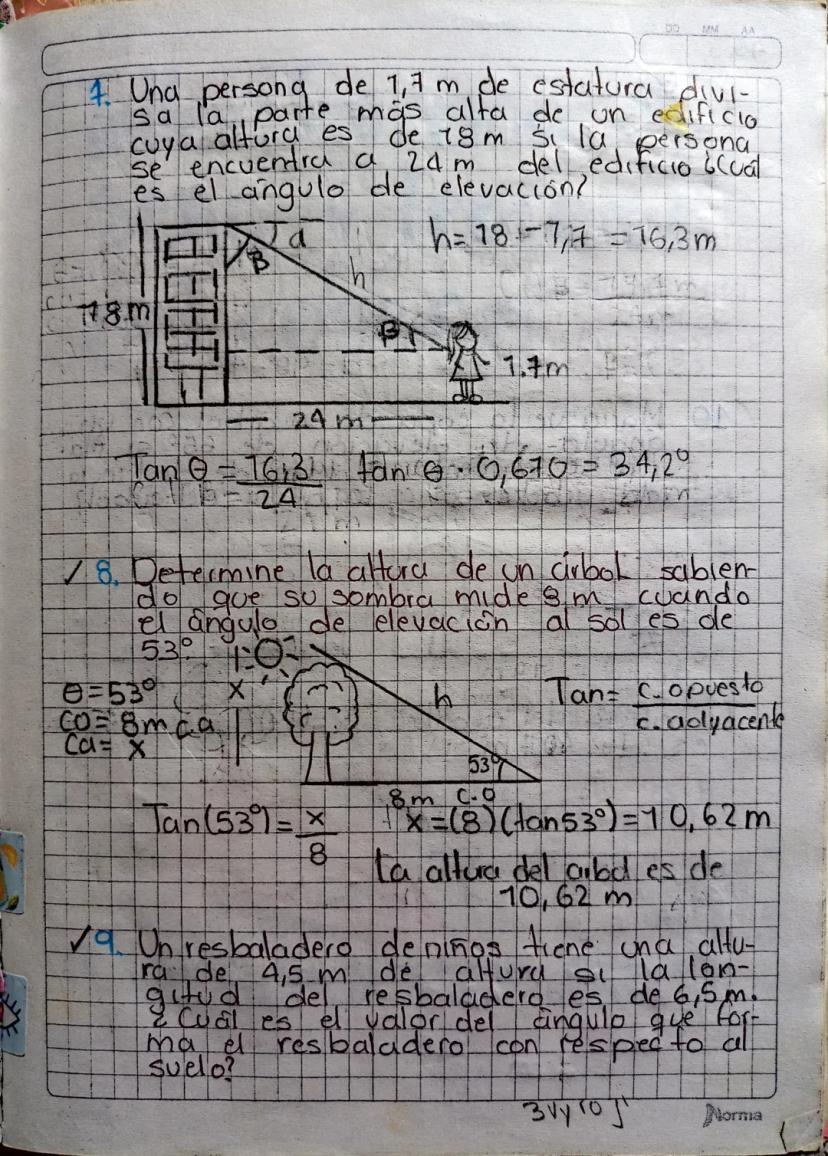 DD MM AA
7. Una persona de 1,7 m de estatura divi-
sa la parte más alta de un edificio
cuya altura es de 18 m si la persona
se encuentra a 24 m del edificio ¿Cual
es el angulo de elevación?
h = 18 - 1,7 = 16,3 m
α
β
h
18 m
β
1.7 m
24 m
Tan θ = 16,3 / 24 tan θ · 0,670 = 34,2°
✓ 8. Determine la altura de un arbol sabien-
do que su sombra mide 8 m cuando
el ángulo de elevación al sol es de
53°.
θ = 53°
CO = 8 m c.a
Ca = x
x
h
Tan = c. opuesto / c. adyacente
53°
8 m C.O
Tan (53°) = x / 8 x = (8) (tan 53°) = 10,62 m
La altura del arbol es de
10,62 m
✓ 9. Un resbaladero de niños tiene una altu-
ra de 4,5 m de altura si la lon-
gitud del resbaladero es de 6,5 m.
¿Cuál es el valor del ángulo que for-
ma el resbaladero con respecto al
suelo?
Norma